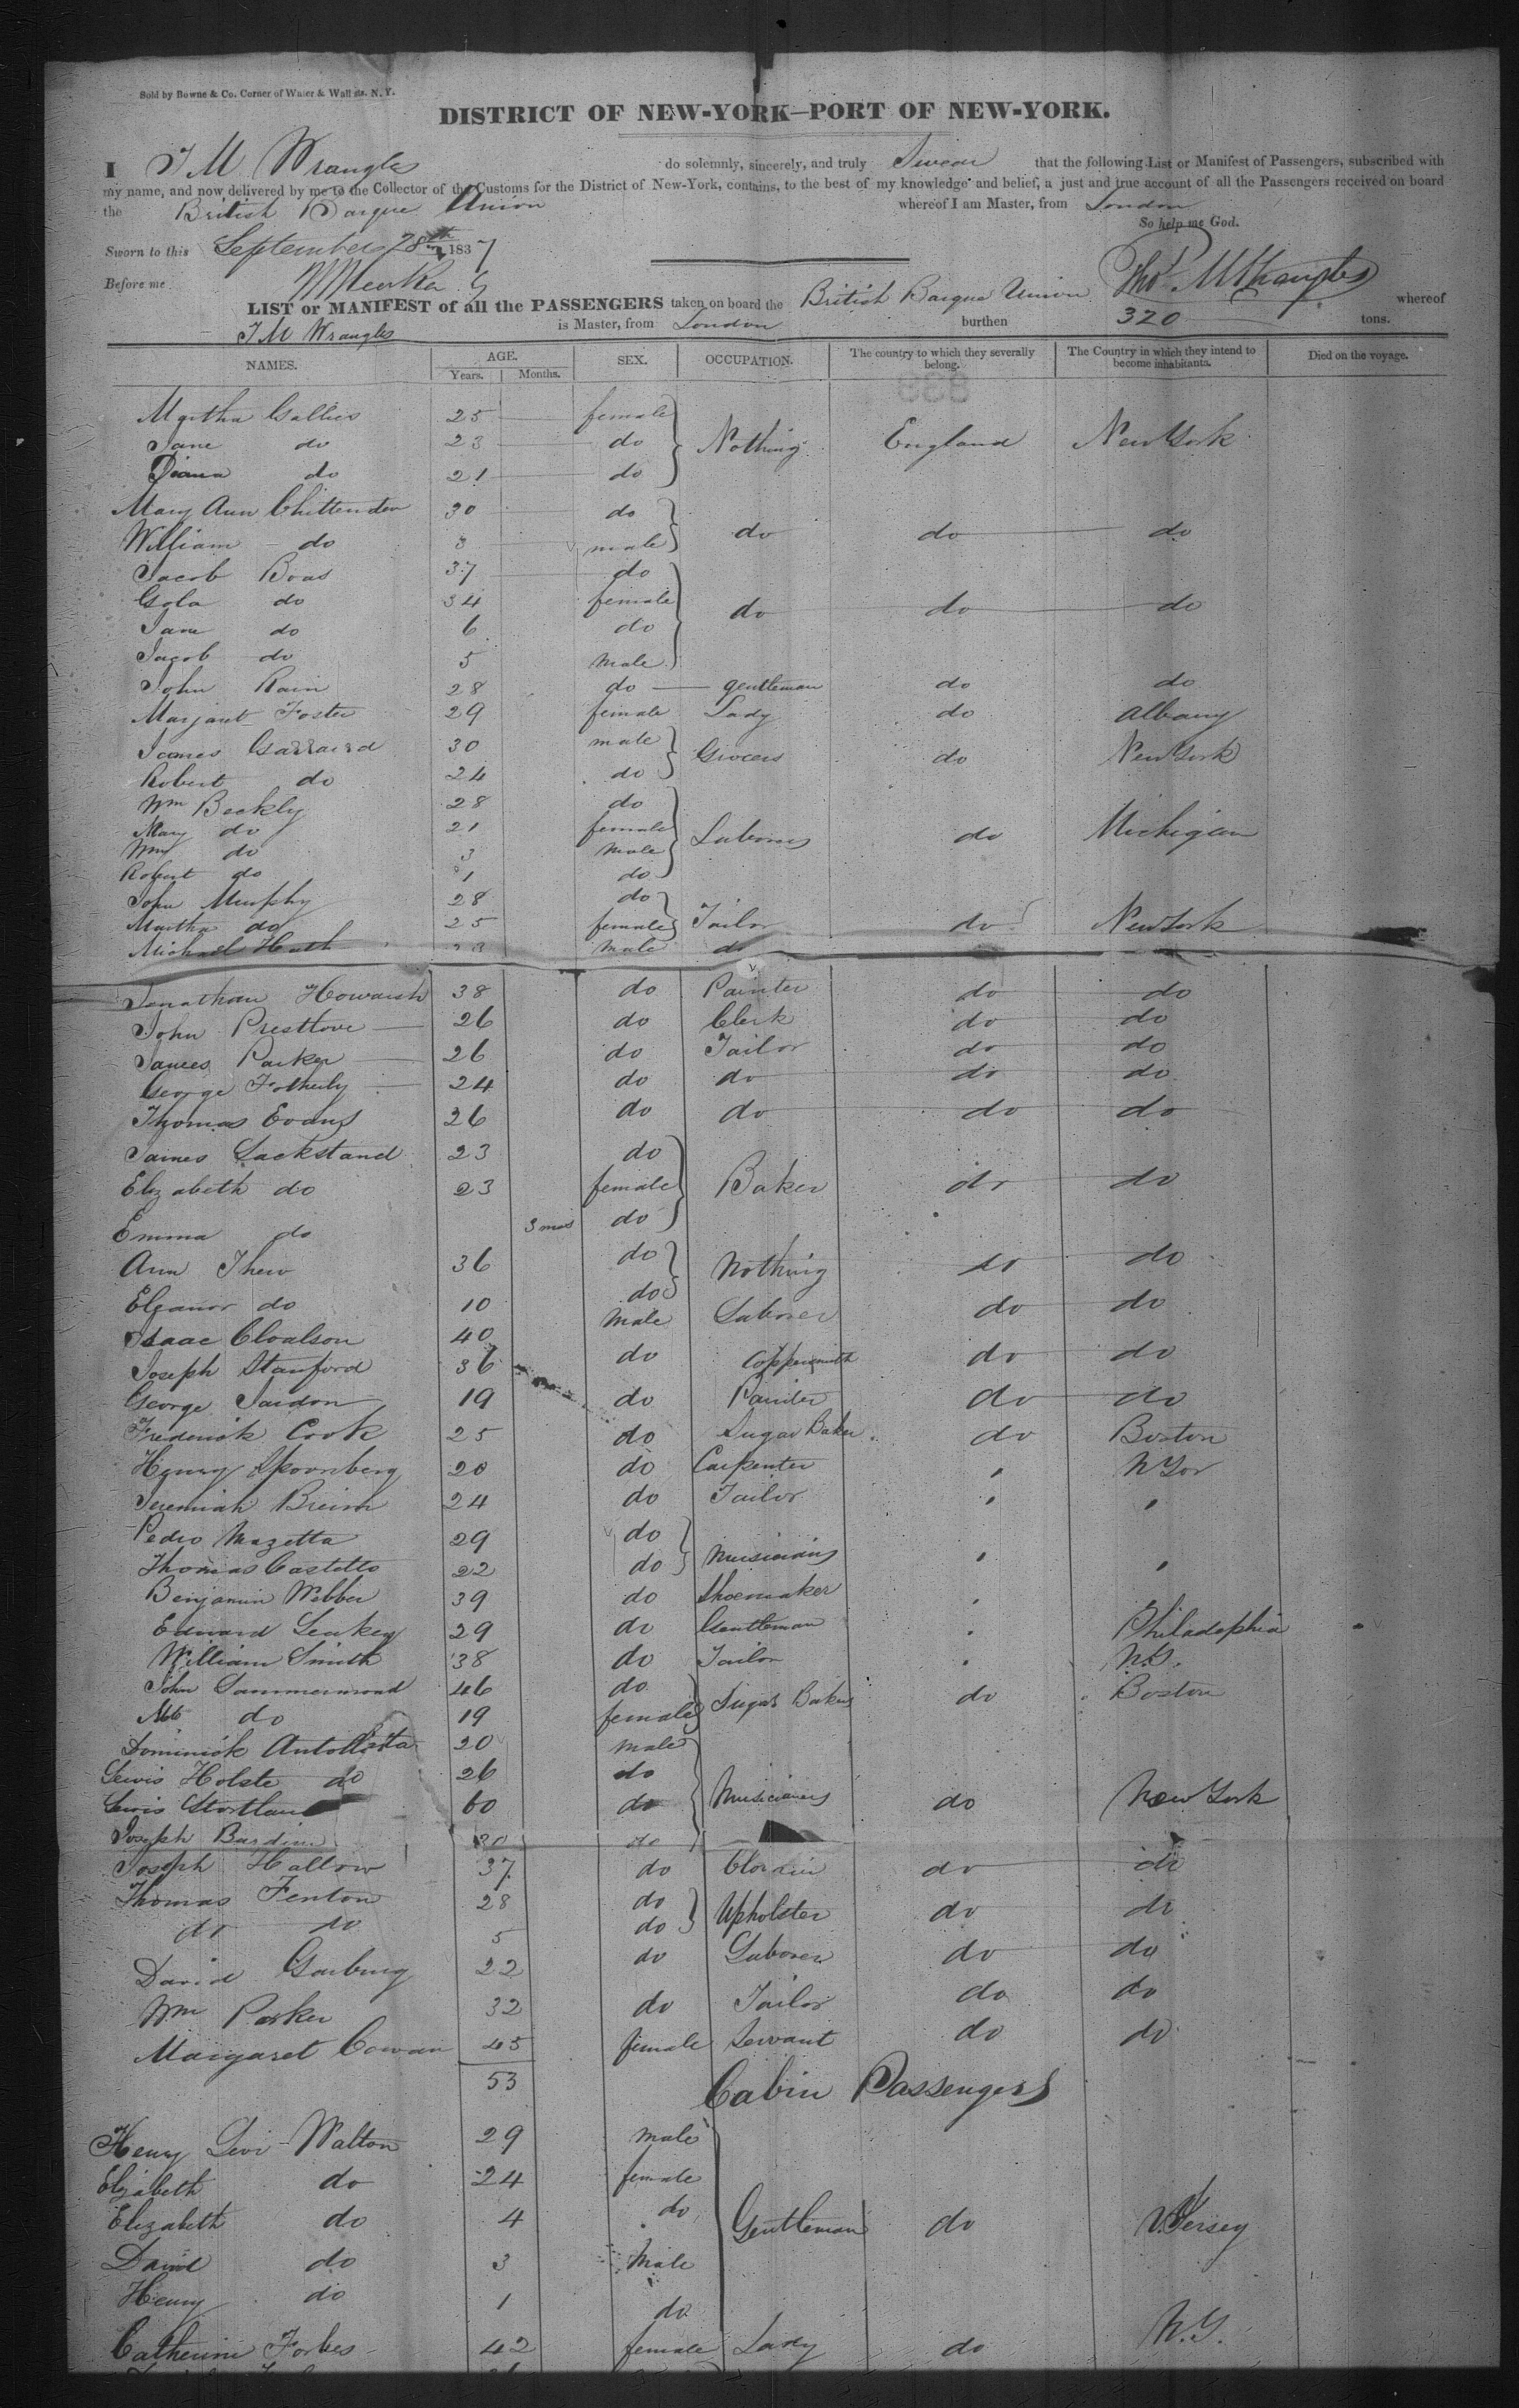 Sold by Bowne & Co. Corner of Water & Wall sts. N. Y.
DISTRICT OF NEW-YORK—PORT OF NEW-YORK.
I T M Wrangles do solemnly, sincerely, and truly Swear that the following List or Manifest of Passengers, subscribed with
my name, and now delivered by me to the Collector of the Customs for the District of New-York, contains, to the best of my knowledge and belief, a just and true account of all the Passengers received on board
the British Barque Union whereof I am Master, from London
So help me God.
Sworn to this September 28th 1837
Before me
LIST or MANIFEST of all the PASSENGERS taken on board the British Barque Union whereof
T M Wrangles is Master, from London burthen 320 tons.
NAMES. AGE. Years. Months. SEX. OCCUPATION. The country to which they severally belong. The Country in which they intend to become inhabitants. Died on the voyage.
Martha Gallies 25 female
Jane do 23 do Nothing England New York
Diana do 21 do
Mary Ann Chittenden 30 do
William do 3 male do do do
Jacob Boas 37 do
Gola do 34 female do do do
Jane do 6 do
Jacob do 5 male
John Rain 28 do gentleman do do
Marjant Foster 29 female Lady do Albany
James Garraird 30 male Grocers do New York
Robert do 24 do
Wm Beckly 28 do
Mary do 21 female Labourers do Michigan
Wm do 3 male
Robert do 1 do
John Murphy 28 do
Martha do 25 female Tailor do New York
Michael Heath 23 male do
Jonathan Howarsh 38 do Painter do do
John Prestlove 26 do Clerk do do
James Parker 26 do Tailor do do
George Fotherly 24 do do do do
Thomas Evans 26 do do do do
James Sackstand 23 do
Elizabeth do 23 female Baker do do
Emma do 3 mos do
Ann Thew 36 do Nothing do do
Eleanor do 10 do
Isaac Cloalson 40 male Laborer do do
Joseph Stanford 36 do Coppersmith do do
George Jardon 19 do Painter do do
Frederick Cook 25 do Sugar Baker do Boston
Henry Spoonberg 20 do Carpenter " N Yor
Jeremiah Breim 24 do Tailor " "
Pedro Mazetta 29 do
Thomas Castetto 22 do Musicians " "
Benjamin Webber 39 do Shoemaker "
Edward Leakey 29 do Gentleman " Philadelphia
William Smith 38 do Tailor " N.Y.
John Sammermond 46 do Sugar Bakers do Boston
do 19 female
Dominick 20 male
Lewis Holste do 26 do
Lewis 60 do Musicianers do New York
Joseph Bardini 30 do
Joseph Hallow 37 do do do
Thomas Fenton 28 do Upholster do do
do do 5 do
David Garburg 22 do Laborer do do
Wm Parker 32 do Tailor do do
Margaret Cowan 45 female Servant do do
53
Cabin Passengers
Henry Levi Walton 29 male
Elizabeth do 24 female
Elizabeth do 4 do Gentleman do N. Jersey
David do 3 male
Henry do 1 do
Catherine Forbes 42 female Lady do N.Y.